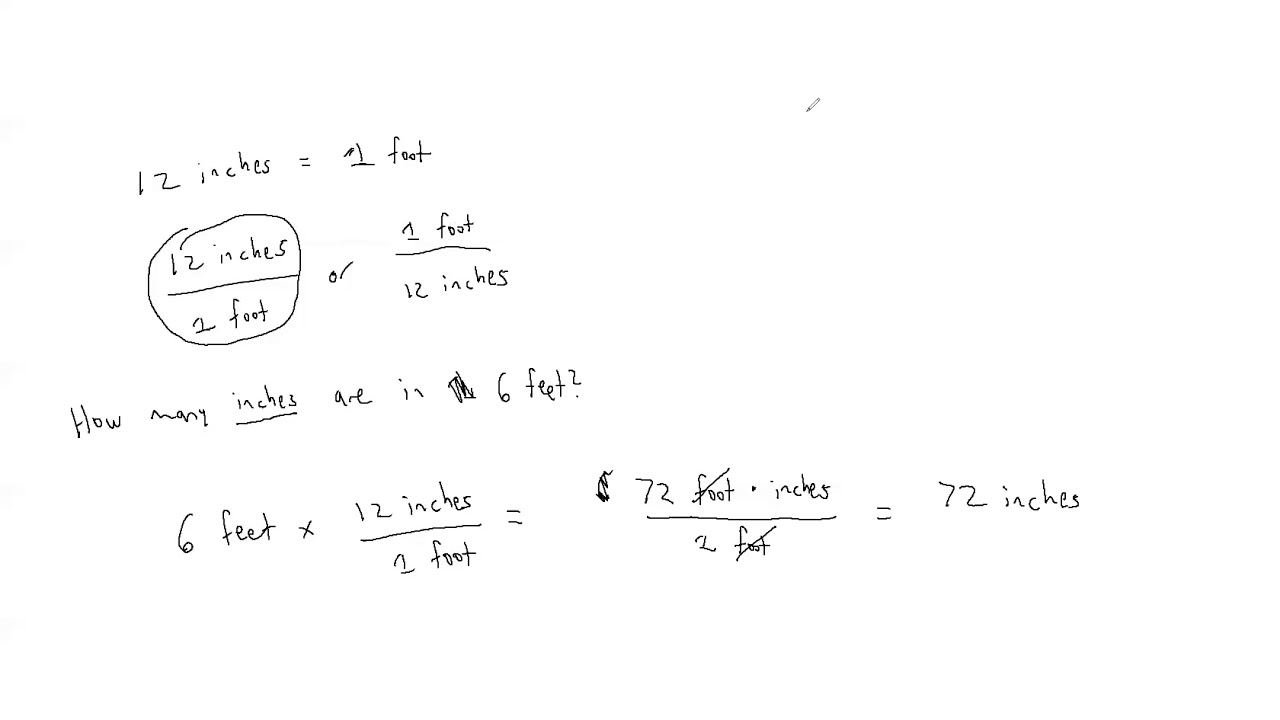 12 inches = 1 foot
12 inches / 1 foot or 1 foot / 12 inches
How many inches are in 6 feet?
6 feet × 12 inches / 1 foot = 72 foot · inches / 1 foot = 72 inches